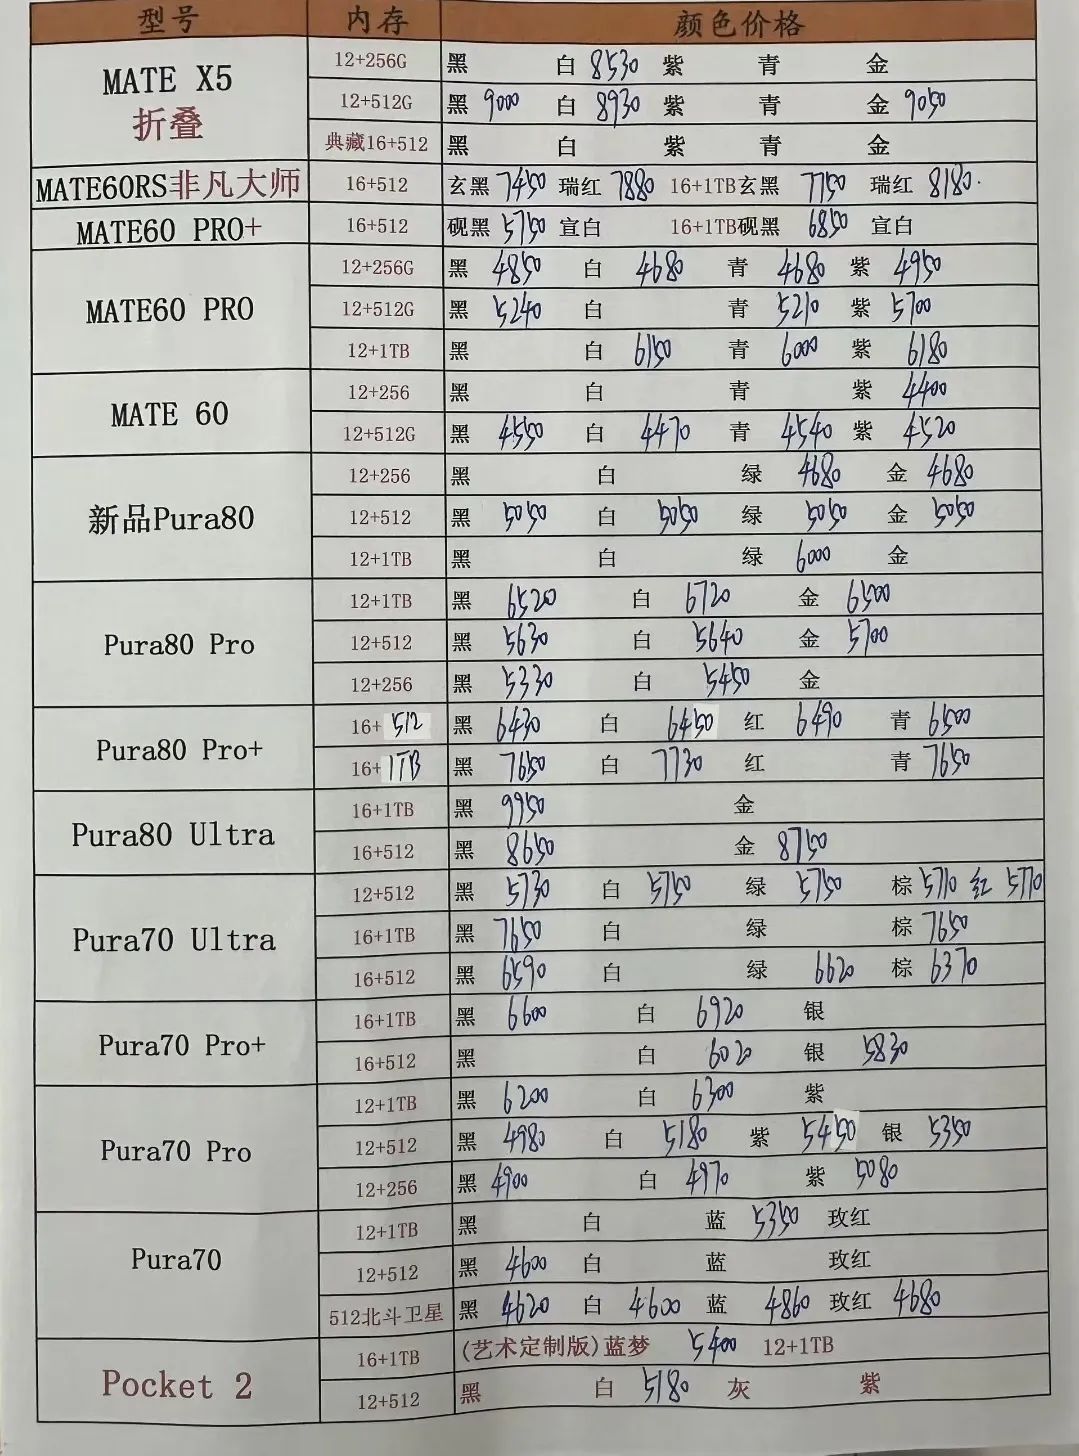 型号 内存 颜色价格
MATE X5 折叠 12+256G 黑 白 8530 紫 青 金
12+512G 黑 9000 白 8930 紫 青 金 9050
典藏16+512 黑 白 紫 青 金
MATE60RS非凡大师 16+512 玄黑 7450 瑞红 7880 16+1TB玄黑 7750 瑞红 8180.
MATE60 PRO+ 16+512 砚黑 5750 宣白 16+1TB砚黑 6850 宣白
MATE60 PRO 12+256G 黑 4850 白 4680 青 4680 紫 4950
12+512G 黑 5240 白 青 5210 紫 5700
12+1TB 黑 白 6150 青 6000 紫 6180
MATE 60 12+256 黑 白 青 紫 4400
12+512G 黑 4550 白 4470 青 4540 紫 4520
新品Pura80 12+256 黑 白 绿 4680 金 4680
12+512 黑 5050 白 5050 绿 5050 金 5050
12+1TB 黑 白 绿 6000 金
Pura80 Pro 12+1TB 黑 6520 白 6720 金 6500
12+512 黑 5630 白 5640 金 5700
12+256 黑 5330 白 5450 金
Pura80 Pro+ 16+512 黑 6430 白 6450 红 6490 青 6500
16+1TB 黑 7650 白 7730 红 青 7650
Pura80 Ultra 16+1TB 黑 9950 金
16+512 黑 8650 金 8750
Pura70 Ultra 12+512 黑 5730 白 5750 绿 5750 棕 5710 红 5770
16+1TB 黑 7650 白 绿 棕 7650
16+512 黑 6590 白 绿 6620 棕 6370
Pura70 Pro+ 16+1TB 黑 6600 白 6920 银
16+512 黑 白 6020 银 5830
Pura70 Pro 12+1TB 黑 6200 白 6300 紫
12+512 黑 4980 白 5180 紫 5450 银 5350
12+256 黑 4900 白 4970 紫 5080
Pura70 12+1TB 黑 白 蓝 5350 玫红
12+512 黑 4600 白 蓝 玫红
512北斗卫星 黑 4620 白 4600 蓝 4860 玫红 4680
Pocket 2 16+1TB (艺术定制版)蓝梦 5400 12+1TB
12+512 黑 白 5180 灰 紫